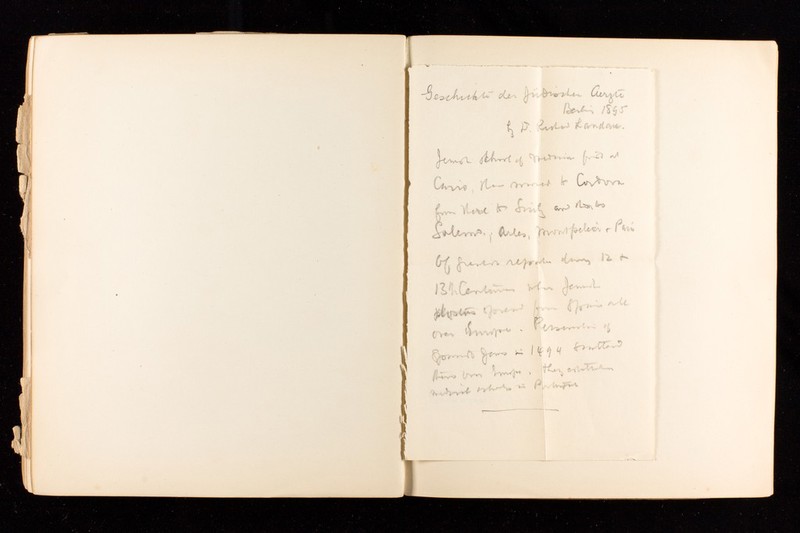 Geschichte der Jüdischen Aerzte
Berlin 1895
by Dr. Richard Landau.
Jewish School of Medicine first at
Cairo, then moved to Cordova
from there to Sicily and thence
Salerno, Arles, Montpelier & Paris
Of greatest repute during 12 &
13th Centuries when Jewish
doctors spread from Spain all
over Europe. Persecution of
Spanish Jews in 1494 scattered
them over Europe. They
medical schools in